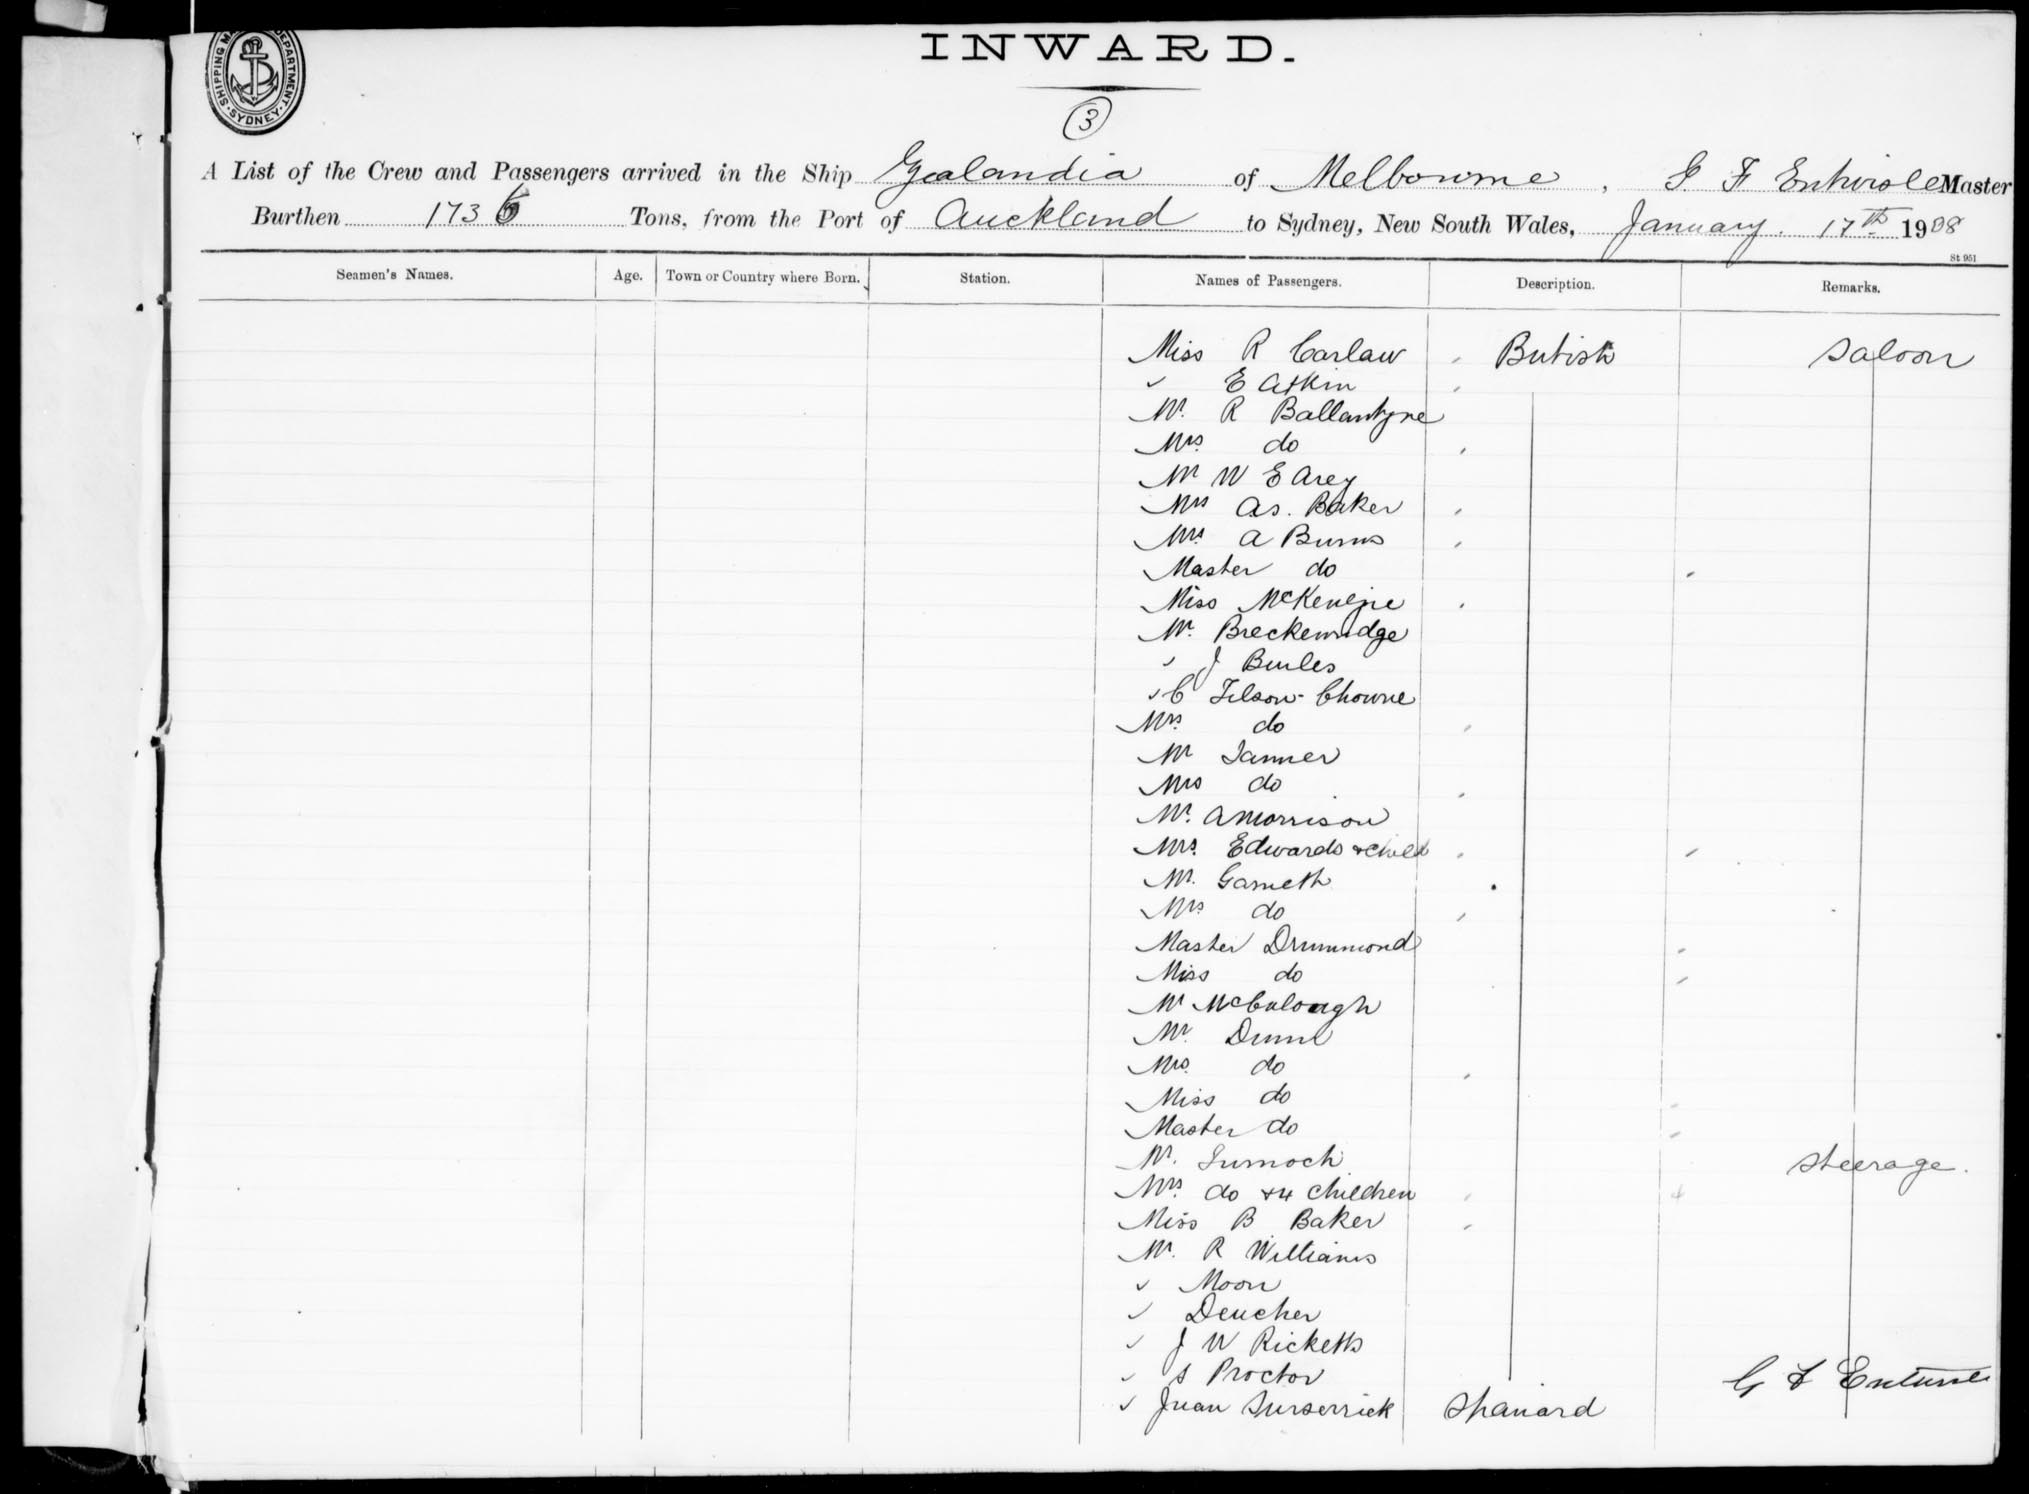 SHIPPING MASTER'S DEPARTMENT SYDNEY
INWARD.
3
A List of the Crew and Passengers arrived in the Ship Zealandia of Melbourne, G F Entwisle Master
Burthen 1736 Tons, from the Port of Auckland to Sydney, New South Wales, January 17th 1908
St 951
Seamen's Names. Age. Town or Country where Born. Station. Names of Passengers. Description. Remarks.
Miss R Carlaw British Saloon
✓ E Atkin
Mr. R Ballantyne
Mrs do
Mr W E Arey
Mrs As. Baker
Mrs A Burns
Master do
Miss McKenzie
Mr. Breckenridge
✓ J Beules
✓ C Tilson-Chowne
Mrs do
Mr Tanner
Mrs do
Mr. A Morrison
Mrs. Edwards & child
Mr. Garneth
Mrs do
Master Drummond
Miss do
Mr McCulough
Mr. Dunn
Mrs. do
Miss do
Master do
Mr. Steerage.
Mrs. do & 4 children 4
Miss B Baker
Mr. R Williams
✓ Moon
✓ Deucher
✓ J W Ricketts
✓ S Proctor
G F Entwisle
✓ Juan Spaniard